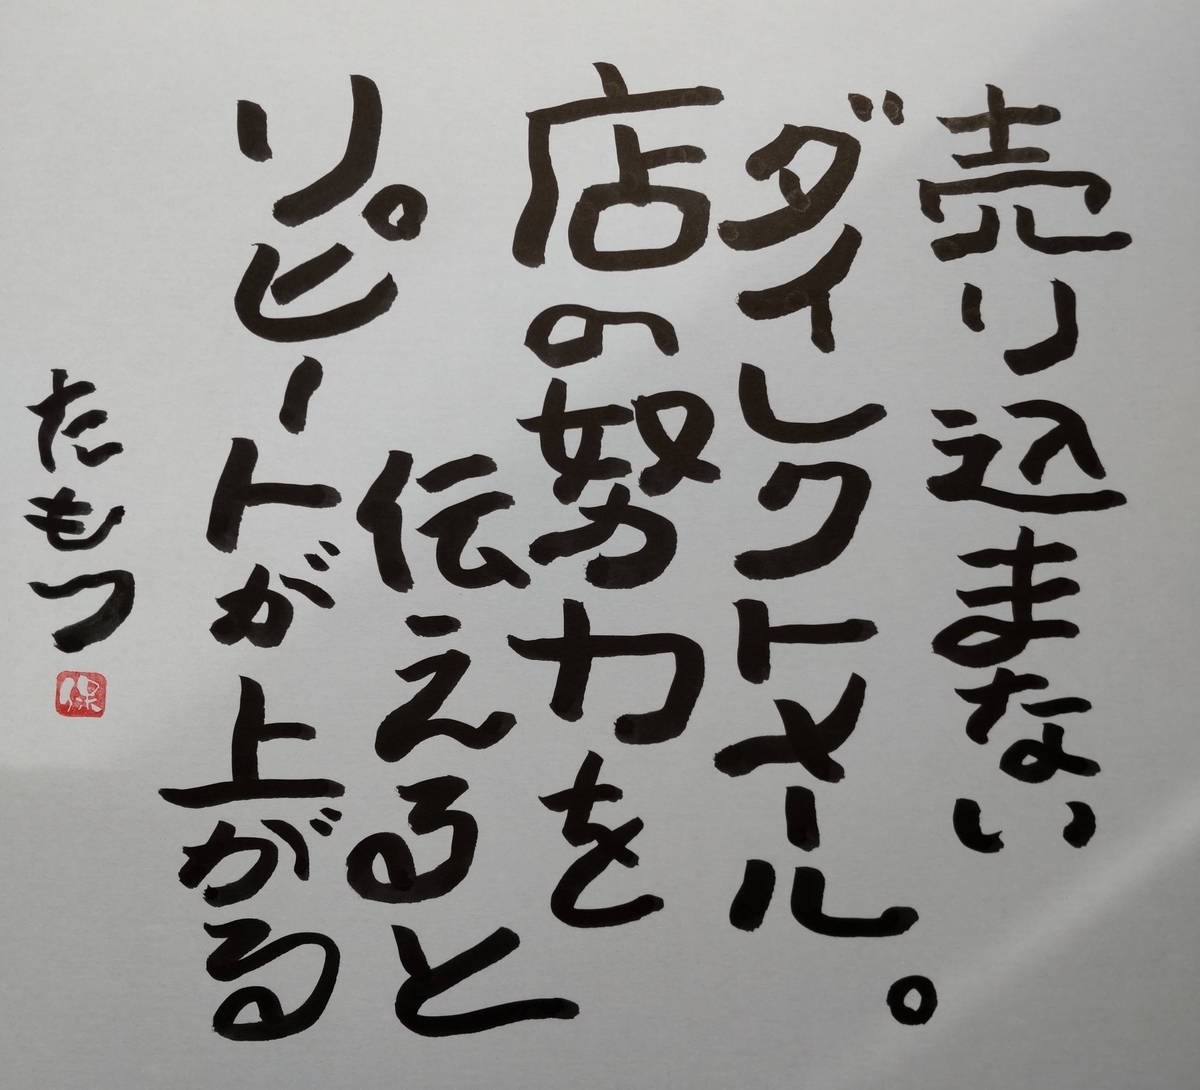 売り込まない
ダイレクトメール。
店の努力を
伝えると
リピートが上がる
たもつ
保